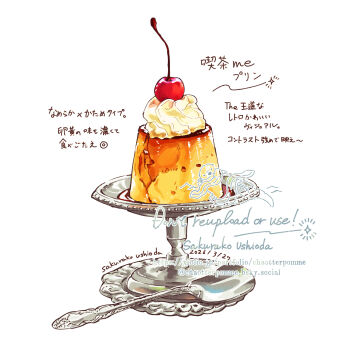 喫茶me
プリン
なめらか×かためタイプ。
卵黄の味も濃くて
食べごたえ◎
The 王道な
レトロかわいい
ヴィジュアル。
コントラスト強めで映え〜
Don't reupload or use!
Sakurako Ushioda
Sakurako Ushioda 2026/3/29